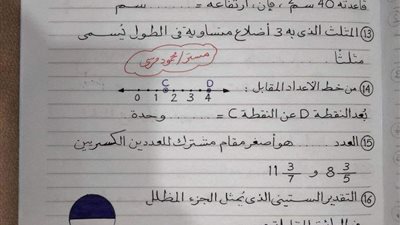 قاعدته 40 سم²، فإن ارتفاعه = ........ سم
⑬ المثلث الذى به 3 أضلاع متساوية فى الطول يُسمى
مثلثًا ..........
مستر/محمود مرسى
⑭ من خط الأعداد المقابل :
C D
0 1 2 3 4
بُعد النقطة D عن النقطة C = ........ وحدة
⑮ العدد ........ هو أصغر مقام مشترك للعددين الكسريين
8 3/5 و 11 3/7
⑯ التقدير الستينى الذى يُمثل الجزء المظلل